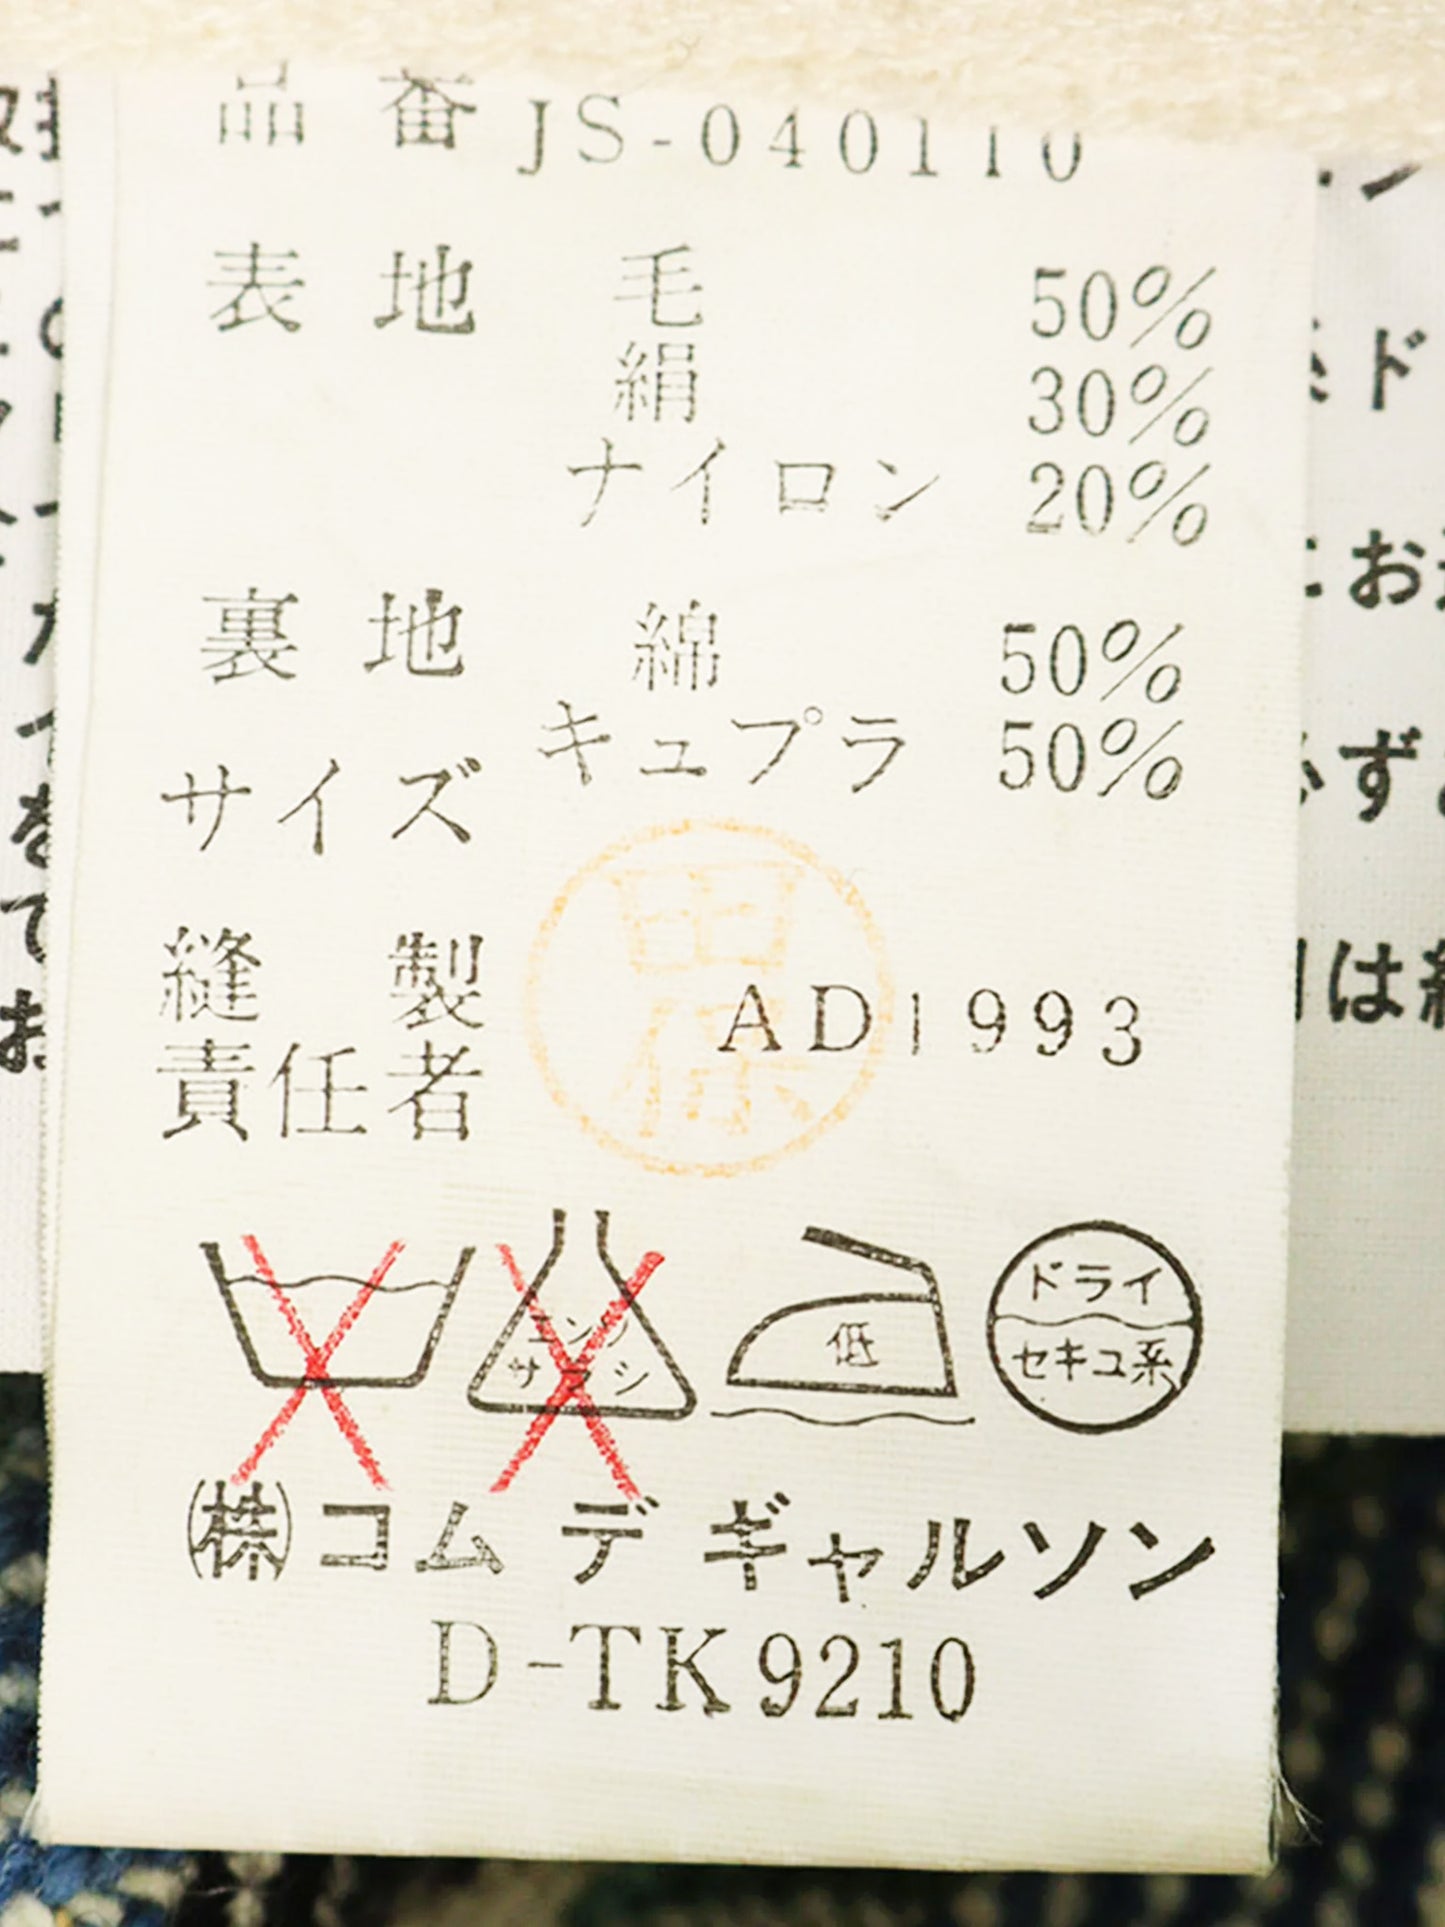 品番 JS-040110
表地 毛 50%
絹 30%
ナイロン 20%
裏地 綿 50%
キュプラ 50%
サイズ
縫製
責任者
AD1993
エンソ
サラシ
低
ドライ
セキユ系
㈱コム デ ギャルソン
D-TK9210